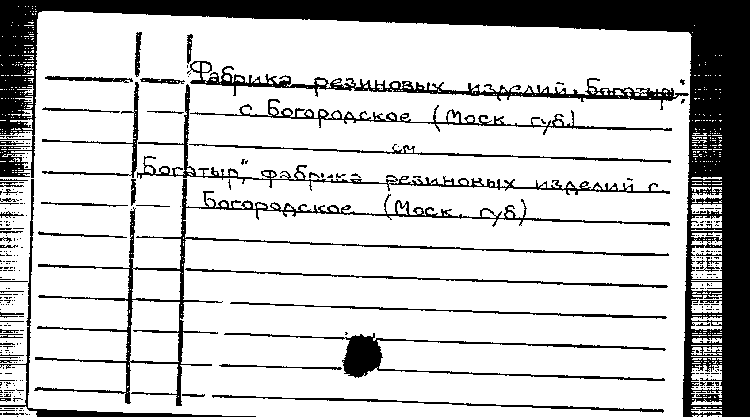 Фабрика резиновых изделий „Богатырь"
с. Богородское (Моск. губ.)
см.
„Богатыр", фабрика резиновых изделий с.
Богородское (Моск. губ)